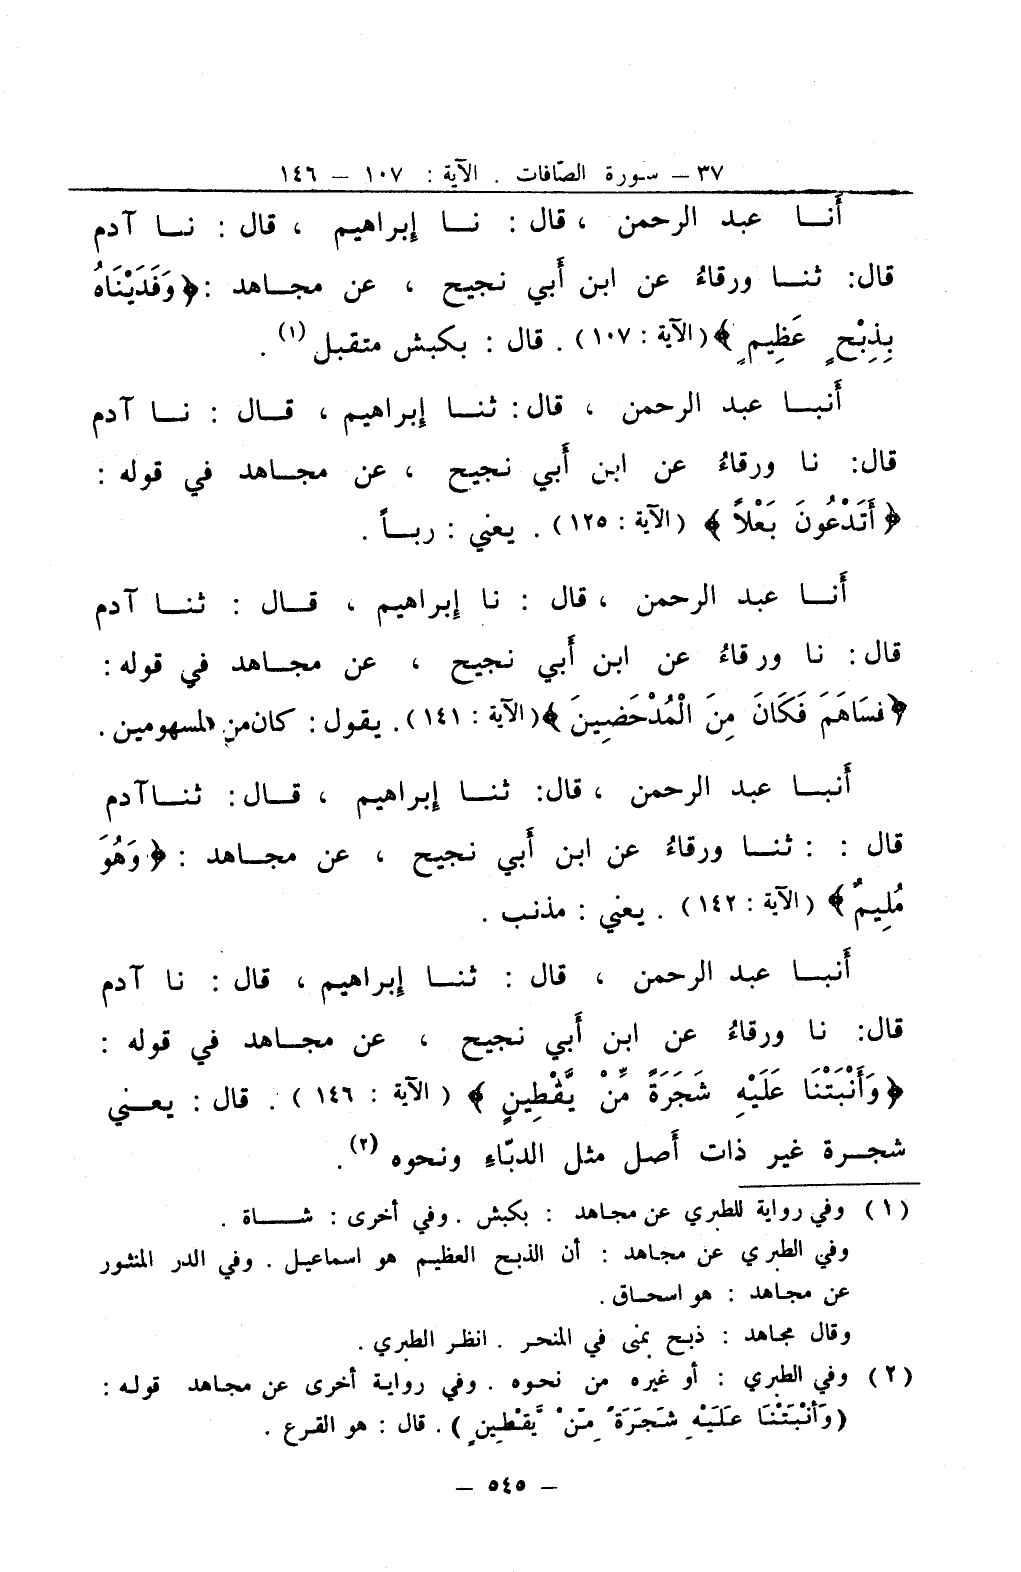 ٣٧ – سورة الصّافات . الآية : ١٠٧ – ١٤٦
أَنا عبد الرحمن ، قال : نا إبراهيم ، قال : نا آدم
قال : ثنا ورقاءُ عن ابن أَبي نجيح ، عن مجاهد : ﴿ وَفَدَيْنَاهُ
بِذِبْحٍ عَظِيمٍ ﴾ (الآية : ١٠٧) . قال : بكبش متقبل (١) .
أَنبا عبد الرحمن ، قال : ثنا إبراهيم ، قال : نا آدم
قال : نا ورقاءُ عن ابن أَبي نجيح ، عن مجاهد في قوله :
﴿ أَتَدْعُونَ بَعْلاً ﴾ (الآية : ١٢٥) . يعني : رباً .
أَنا عبد الرحمن ، قال : نا إبراهيم ، قال : ثنا آدم
قال : نا ورقاءُ عن ابن أَبي نجيح ، عن مجاهد في قوله :
﴿ فسَاهَمَ فَكَانَ مِنَ الْمُدْحَضِينَ ﴾ (الآية : ١٤١) . يقول : كان من المسهومين .
أَنبا عبد الرحمن ، قال : ثنا إبراهيم ، قال : ثنا آدم
قال : : ثنا ورقاءُ عن ابن أَبي نجيح ، عن مجاهد : ﴿ وَهُوَ
مُلِيمٌ ﴾ (الآية : ١٤٢) . يعني : مذنب .
أَنبا عبد الرحمن ، قال : ثنا إبراهيم ، قال : نا آدم
قال : نا ورقاءُ عن ابن أَبي نجيح ، عن مجاهد في قوله :
﴿ وَأَنْبَتْنَا عَلَيْهِ شَجَرَةً مِّنْ يَّقْطِينٍ ﴾ (الآية : ١٤٦) . قال : يعني
شجرة غير ذات أَصل مثل الدبّاءِ ونحوه (٢) .
(١) وفي رواية للطبري عن مجاهد : بكبش . وفي أخرى : شاة .
وفي الطبري عن مجاهد : أن الذبح العظيم هو اسماعيل . وفي الدر المنثور
عن مجاهد : هو اسحاق .
وقال مجاهد : ذبح بمنى في المنحر . انظر الطبري .
(٢) وفي الطبري : أو غيره من نحوه . وفي رواية أخرى عن مجاهد قوله :
(وَأَنْبَتْنَا عَلَيْهِ شَجَرَةً مِّنْ يَّقْطِينٍ) . قال : هو القرع .
– ٥٤٥ –